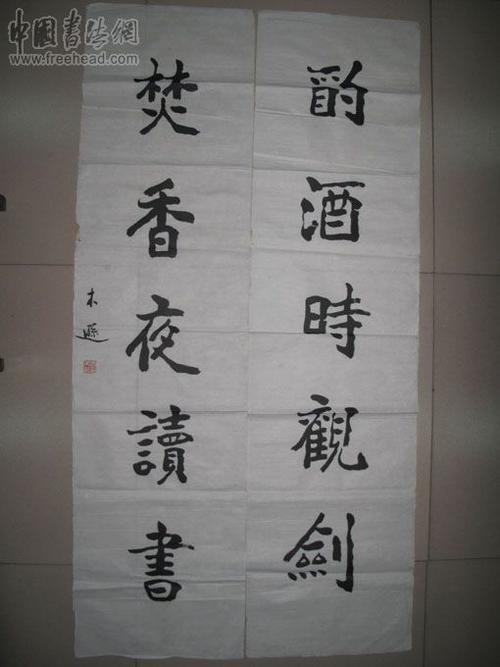 中国书法網
www.freehead.com
酌酒時觀劍
焚香夜讀書
木遜